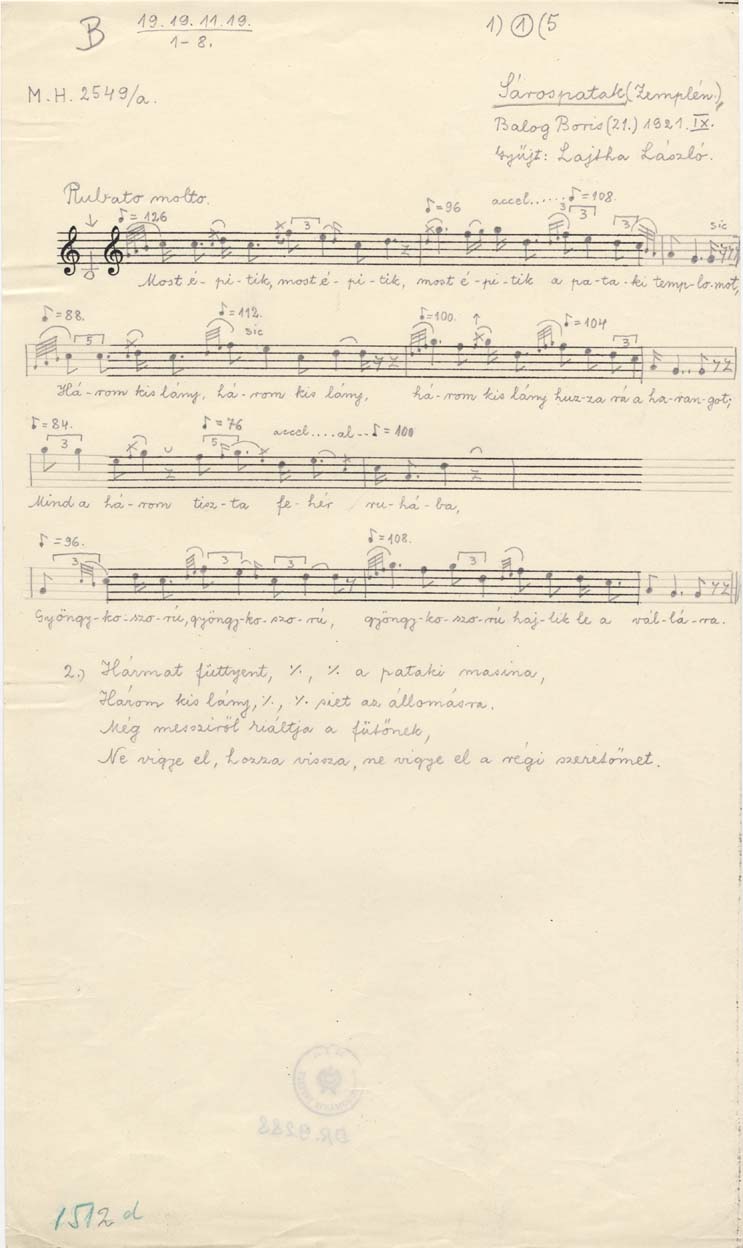 B 19. 19. 11. 19. 1) ① (5
1-8.
M.H. 2549/a. Sárospatak (Zemplén.)
Balog Boris (21.) 1921. IX.
Gyűjt: Lajtha László.
Rubato molto.
♪=126 3 ♪=96 accel...... ♪=108. 3 3 3 sic
Most é-pi-tik, most é-pi-tik, most é-pi-tik a pa-ta-ki temp-lo-mot,
♪=88. 5 ♪=112. sic ♪=100. ♪=104 3
Há-rom kis lány, há-rom kis lány, há-rom kis lány huz-za rá a ha-ran-got;
♪=84. 3 ♪=76 5 accel....al..♪=100
Mind a há-rom tisz-ta fe-hér ru-há-ba,
♪=96. 3 3 3 ♪=108. 3
Gyöngy-ko-szo-rú, gyöngy-ko-szo-rú, gyöngy-ko-szo-rú haj-lik le a vál-lá-ra.
2.) Hármat füttyent, ٪, ٪ a pataki masina,
Három kis lány, ٪, ٪ siet az állomásra.
Még messziről kiáltja a fűtőnek,
Ne vigye el, hozza vissza, ne vigye el a régi szeretőmet.
DR. 9288
1512 d